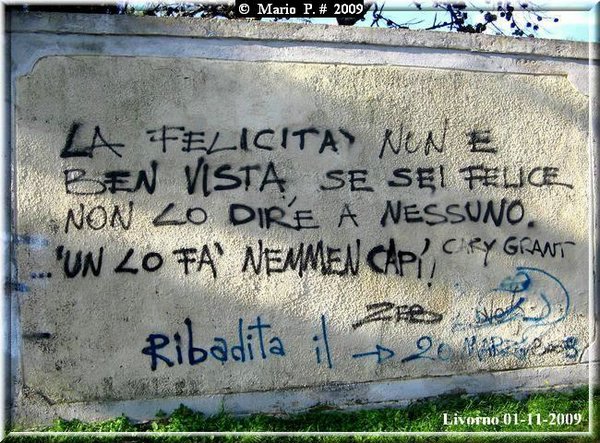 © Mario P. # 2009
LA FELICITA' NON E
BEN VISTA, SE SEI FELICE
NON LO DIRE A NESSUNO.
'UN LO FA' NEMMEN CAPI'!
CARY GRANT
ZEB
Ribadita il → 20
Livorno 01-11-2009